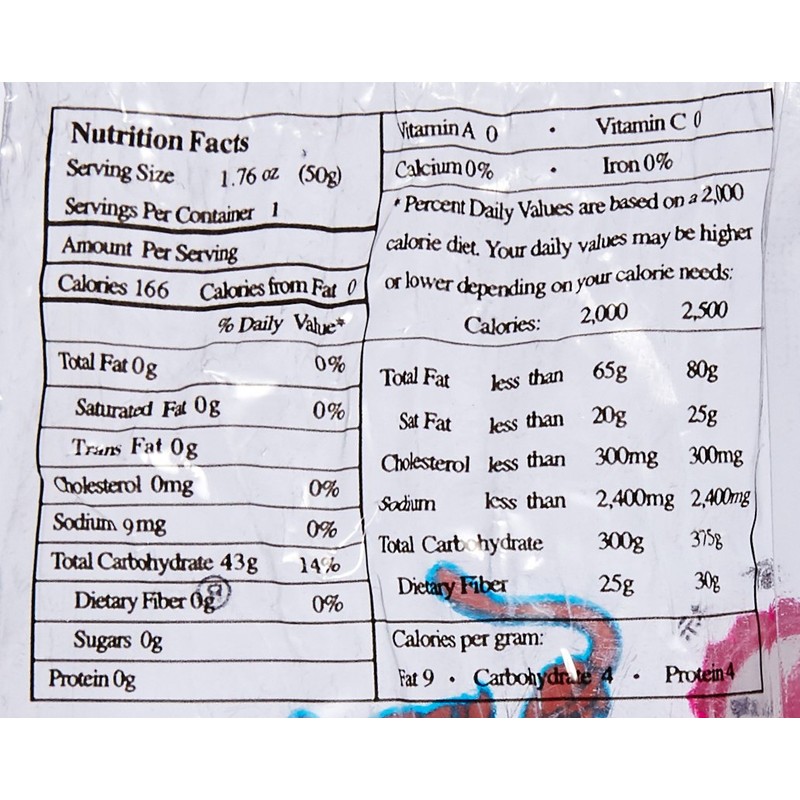 Nutrition Facts
Serving Size 1.76 oz (50g)
Servings Per Container 1
Amount Per Serving
Calories 166 Calories from Fat 0
% Daily Value*
Total Fat 0g 0%
Saturated Fat 0g 0%
Trans Fat 0g
Cholesterol 0mg 0%
Sodium 9mg 0%
Total Carbohydrate 43g 14%
Dietary Fiber 0g 0%
Sugars 0g
Protein 0g
Vitamin A 0 • Vitamin C 0
Calcium 0% • Iron 0%
* Percent Daily Values are based on a 2,000
calorie diet. Your daily values may be higher
or lower depending on your calorie needs:
Calories: 2,000 2,500
Total Fat less than 65g 80g
Sat Fat less than 20g 25g
Cholesterol less than 300mg 300mg
Sodium less than 2,400mg 2,400mg
Total Carbohydrate 300g 375g
Dietary Fiber 25g 30g
Calories per gram:
Fat 9 • Carbohydrate 4 • Protein 4